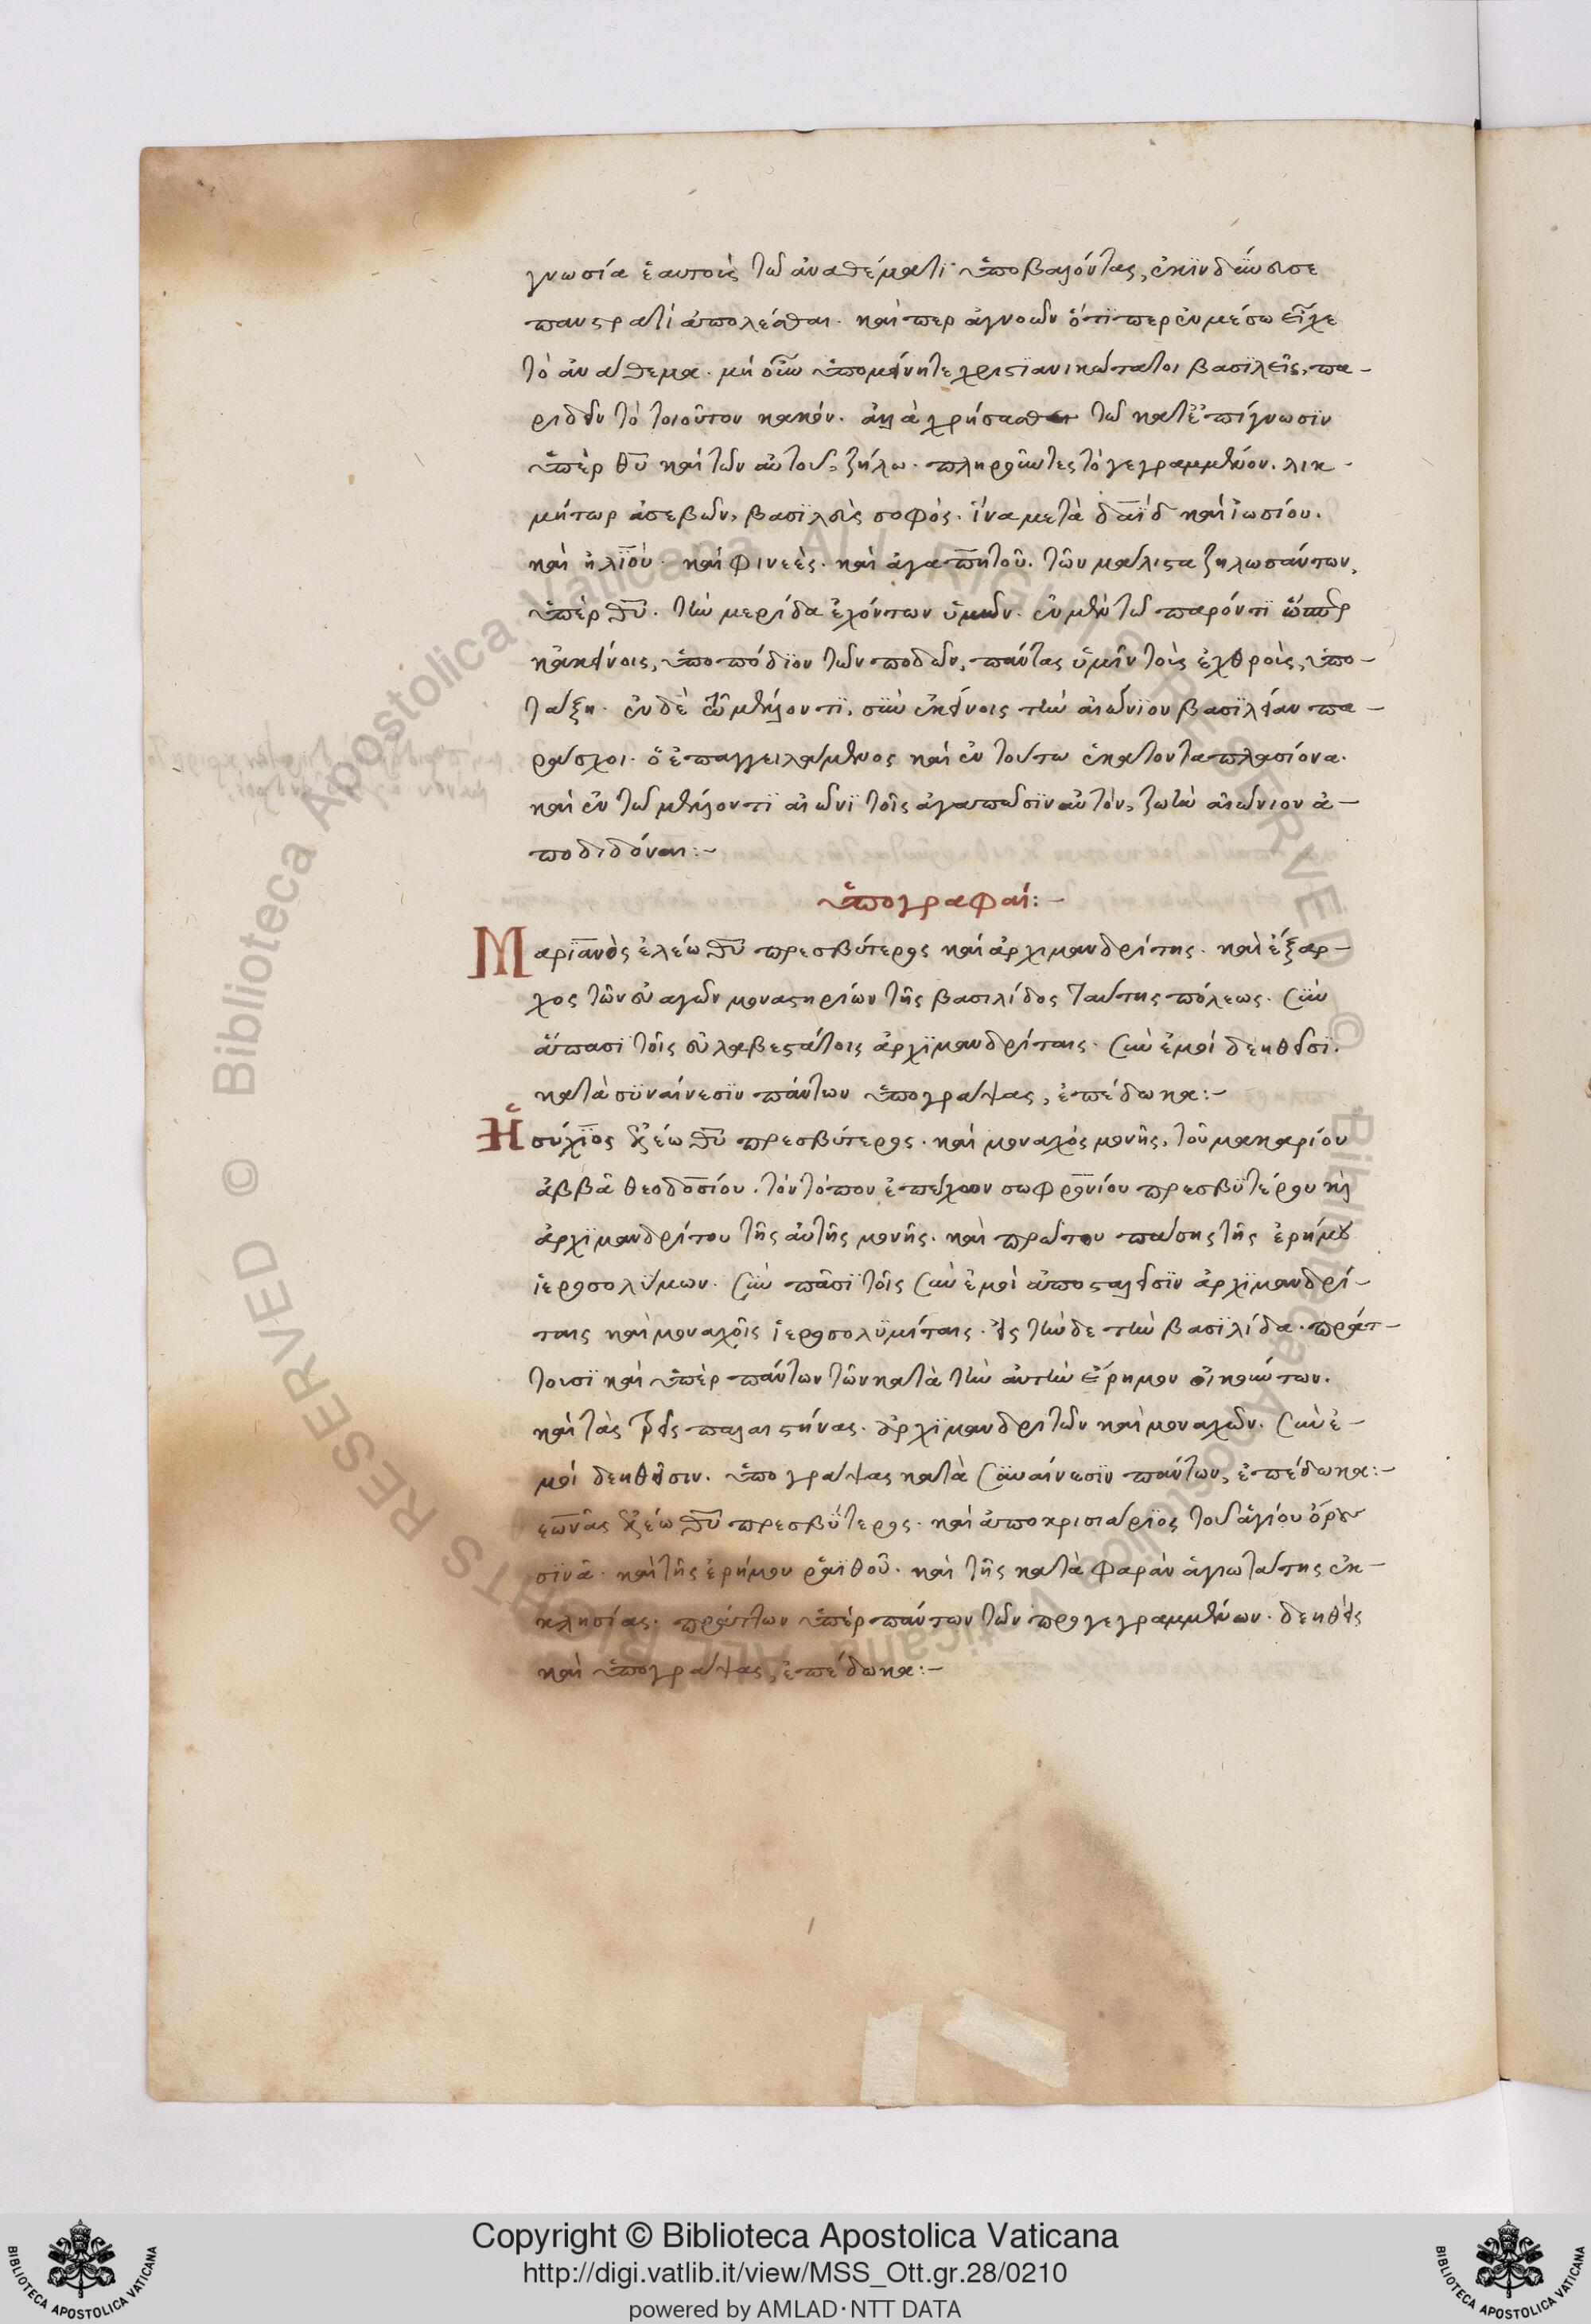 γνωσία ἑαυτοὺς τῶ ἀναθέματι ὑποβαλόντας, ἐκινδύνευσε
πανστρατὶ ἀπολέσθαι. καίπερ ἀγνοῶν ὅτιπερ ἐν μέσω εἶχε
τὸ ἀνάθεμα. μὴ οὖν ὑπομείνητε χριστιανικώτατοι βασιλεῖς, πα-
ριδεῖν τὸ τοιοῦτον κακόν. ἀλλὰ χρήσασθαι τῶ κατ' ἐπίγνωσιν
ὑπὲρ θυ καὶ τῶν αὐτοῦ, ζήλω. πληροῦντες τὸ γεγραμμένον. λικ-
μήτωρ ἀσεβῶν, βασιλεὺς σοφός. ἵνα μετὰ δαδ καὶ ἰωσίου.
καὶ ἠλιοὺ. καὶ φινεὲς. καὶ ἀγαπητοῦ. τῶν μάλιστα ζηλωσάντων,
ὑπὲρ θυ. τὴν μερίδα ἐχόντων ὑμῶν. ἐν μὲν τῶ παρόντι ὥσπερ
κἀκείνοις, ὑποπόδιον τῶν ποδῶν, πάντας ὑμῖν τοὺς ἐχθροὺς, ὑπο-
τάξη. ἐν δὲ τῶ μέλλοντι, σὺν ἐκείνοις τὴν αἰώνιον βασιλείαν πα-
ράσχοι. ὁ ἐπαγγειλάμενος καὶ ἐν τούτω ἑκατονταπλασίονα.
καὶ ἐν τῶ μέλλοντι αἰῶνι τοῖς ἀγαπῶσιν αὐτόν, ζωὴν αἰώνιον ἀ-
ποδιδόναι:-
ὑπογραφαί:-
Μαριανὸς ἐλέω θυ πρεσβύτερος καὶ ἀρχιμανδρίτης. καὶ ἔξαρ-
χος τῶν εὐαγῶν μοναστηρίων τῆς βασιλίδος ταύτης πόλεως. σὺν
ἅπασι τοῖς εὐλαβεστάτοις ἀρχιμανδρίταις. σὺν ἐμοὶ δεηθεῖσι.
κατὰ συναίνεσιν πάντων ὑπογράψας, ἐπέδωκα:-
Ἡσύχιος ἐλέω θυ πρεσβύτερος. καὶ μοναχὸς μονῆς, τοῦ μακαρίου
ἀββᾶ θεοδοσίου. τὸν τόπον ἐπέχων σωφρονίου πρεσβυτέρου καὶ
ἀρχιμανδρίτου τῆς αὐτῆς μονῆς. καὶ πρώτου πάσης τῆς ἐρήμου
ἱεροσολύμων. σὺν πᾶσι τοῖς σὺν ἐμοὶ ἀποσταλεῖσιν ἀρχιμανδρί-
ταις καὶ μοναχοῖς ἱεροσολυμίταις. εἰς τήνδε τὴν βασιλίδα. πράτ-
τουσι καὶ ὑπὲρ πάντων τῶν κατὰ τὴν αὐτὴν ἔρημον οἰκούντων.
καὶ τὰς τρεῖς παλαιστίνας. ἀρχιμανδριτῶν καὶ μοναχῶν. σὺν ἐ-
μοὶ δεηθεῖσιν. ὑπογράψας κατὰ συναίνεσιν πάντων, ἐπέδωκα:-
εωνᾶς ἐλέω θυ πρεσβύτερος. καὶ ἀποκρισιάριος τοῦ ἁγίου ὄρους
σινᾶ. καὶ τῆς ἐρήμου ῥαϊθοῦ. καὶ τῆς κατὰ φαρὰν ἁγιωτάτης ἐκ-
κλησίας. πράττων ὑπὲρ πάντων τῶν προγεγραμμένων. δεηθεὶς
καὶ ὑπογράψας, ἐπέδωκα:-
Copyright © Biblioteca Apostolica Vaticana
http://digi.vatlib.it/view/MSS_Ott.gr.28/0210
powered by AMLAD·NTT DATA
BIBLIOTECA APOSTOLICA VATICANA
BIBLIOTECA APOSTOLICA VATICANA
© Biblioteca Apostolica Vaticana ALL RIGHTS RESERVED
© Biblioteca Apostolica Vaticana ALL RIGHTS RESERVED